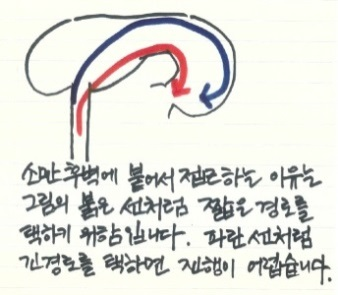 소만 후벽에 붙어서 접근하는 이유는
그림의 붉은 선처럼 짧은 경로를
택하기 위함입니다. 파란 선처럼
긴 경로를 택하면 진행이 어렵습니다.